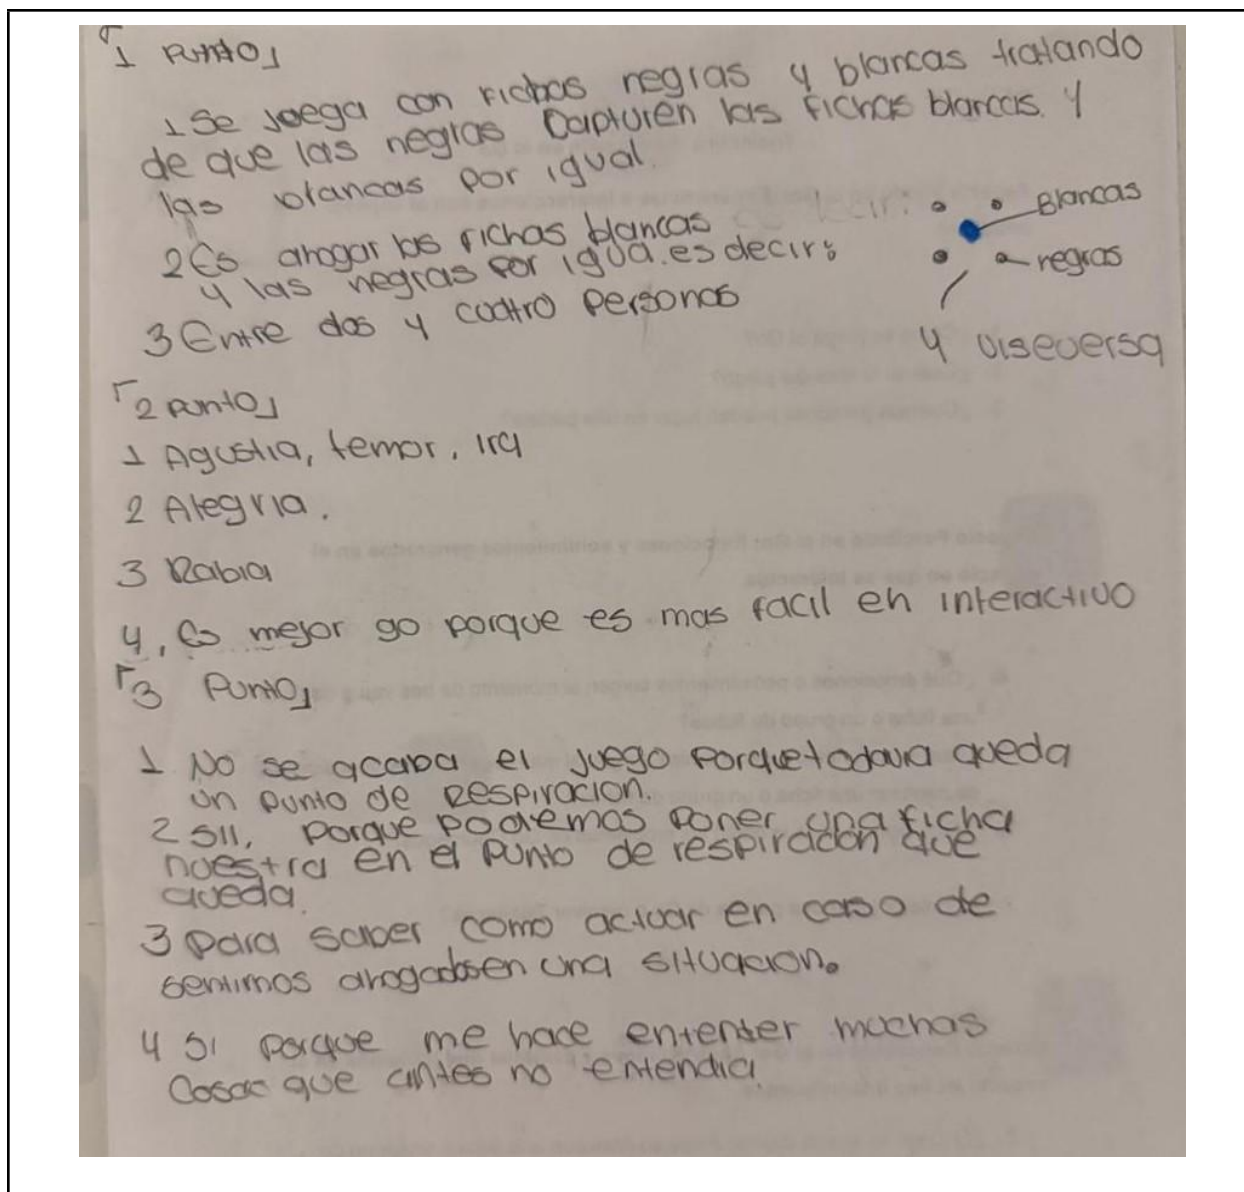 1 Punto
1 Se juega con fichas negras y blancas tratando
de que las negras Capturen las fichas blancas. y
las blancas por igual.
2 Es ahogar las fichas blancas
y las negras por igual. es decir:
Blancas
negras
y viseversa
3 Entre dos y cuatro personas
2 punto
1 Agustia, temor, ira
2 Alegria.
3 Rabia
4, Es mejor go porque es mas facil en interactivo
3 Punto
1 No se acaba el juego porque todavia queda
un punto de respiracion.
2 SII, porque podemos poner una ficha
nuestra en el punto de respiracion que
queda.
3 para saber como actuar en caso de
sentirnos ahogados en una situacion.
4 SI porque me hace ententer muchas
Cosas que antes no entendia.